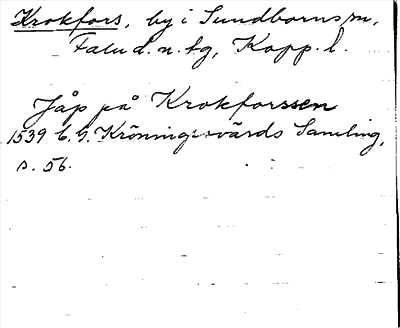 Krokfors, by i Sundborns sn,
Falu d. n. tg, Kopp. l.
Jåp på Krokforssen
1539 C. G. Kröningssvärds Samling,
s. 56.